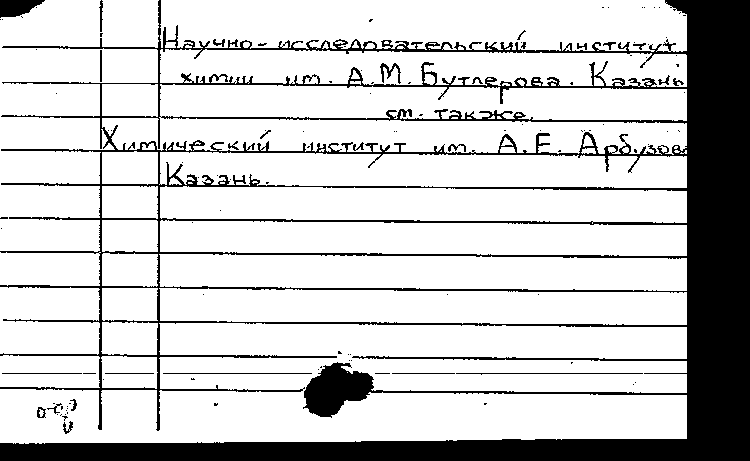 Научно-исследовательский институт
химии им. А.М. Бутлерова. Казань
см. также.
Химический институт им. А.Е. Арбузова
Казань.